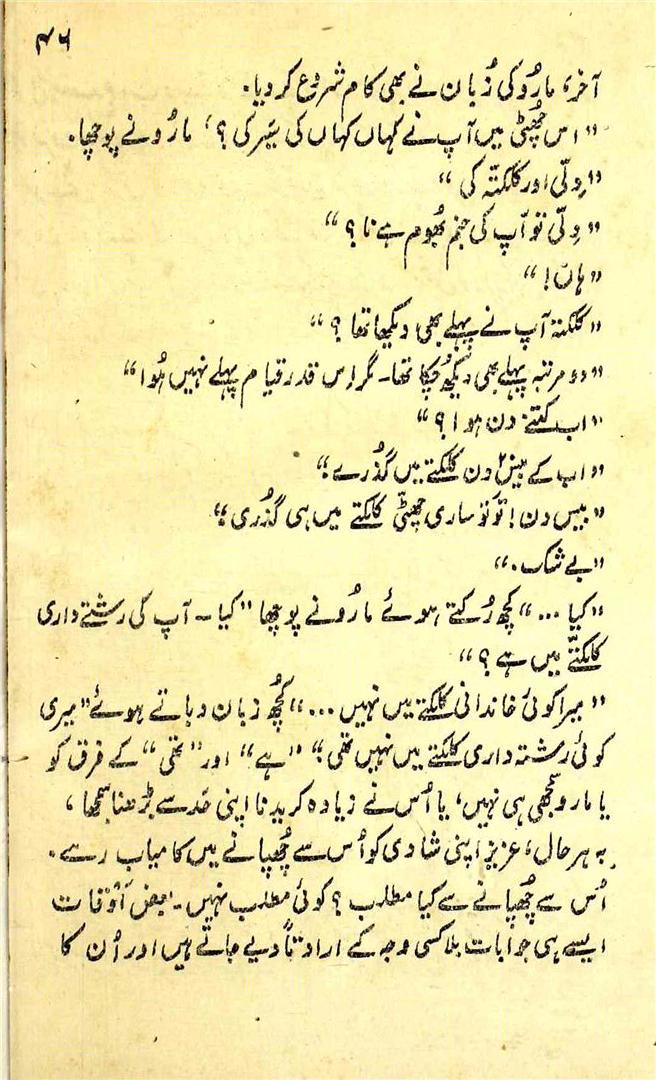 ۴۶
آخر، مارُو کی زُبان نے بھی کام شروع کر دیا۔
"اس چھُٹّی میں آپ نے کہاں کہاں کی سَیر کی؟، مارُو نے پوچھا۔
"دِلّی اور کلکتّہ کی"
"دِلّی تو آپ کی جنم بھُوم ہے نا؟"
"ہاں!"
"کلکتہ آپ نے پہلے بھی دیکھا تھا؟"
"دو مرتبہ پہلے بھی دیکھ چُکا تھا۔ مگر اِس قدر قیام پہلے نہیں ہُوا"
"اب کتنے دن ہوا؟"
"اب کے بیس۲۰ دن کلکتے میں گذُرے"
"بیس دن! تَو تو ساری چھٹّی کلکتے میں ہی گذُری"
"بے شک۔"
"کیا ..." کچھ رُکتے ہوئے مارُو نے پوچھا "کیا – آپ کی رشتے داری
کلکتّے میں ہے؟"
"میرا کوئی خاندانی کلکتے میں نہیں ..." کُچھ زبان دباتے ہوئے "میری
کوئی رشتہ داری کلکتے میں نہیں تھی" "ہے" اور "تھی" کے فرق کو
یا مارو سمجھی ہی نہیں، یا اُس نے زیادہ کریدنا اپنی حَد سے بڑھنا سمجھا،
بہ ہر حال، عزیز اپنی شادی کو اُس سے چھُپانے میں کامیاب رہے۔
اُس سے چھُپانے سے کیا مطلب؟ کوئی مطلب نہیں۔ بعض اَوقات
ایسے ہی جوابات بلا کسی وجہ کے ارادتاً دیے جاتے ہیں اور اُن کا